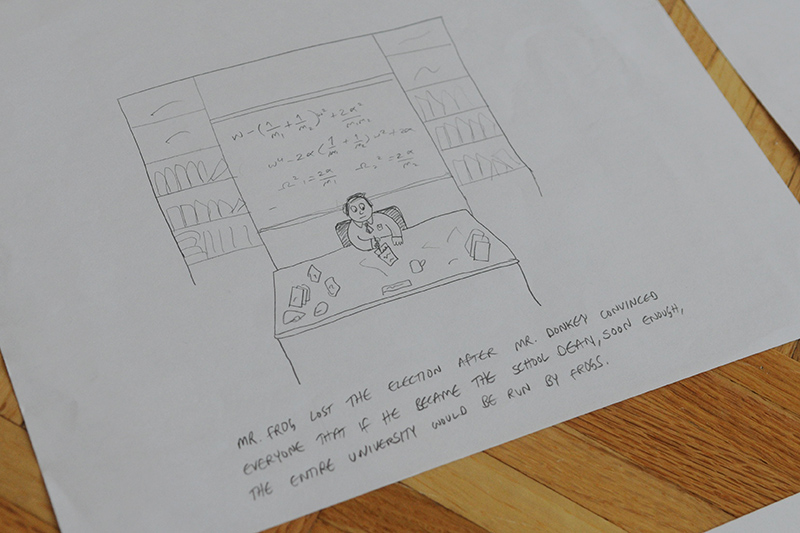 ω - (1/m₁ + 1/m₂)ω² + 2α²/m₁m₂
ω⁴ - 2α(1/m + 1/m₂)
Ω²₁ = 2α/m₁ Ω₂² = 2α/m₂
MR. FROG LOST THE ELECTION AFTER MR. DONKEY CONVINCED
EVERYONE THAT IF HE BECAME THE SCHOOL DEAN, SOON ENOUGH,
THE ENTIRE UNIVERSITY WOULD BE RUN BY FROGS.